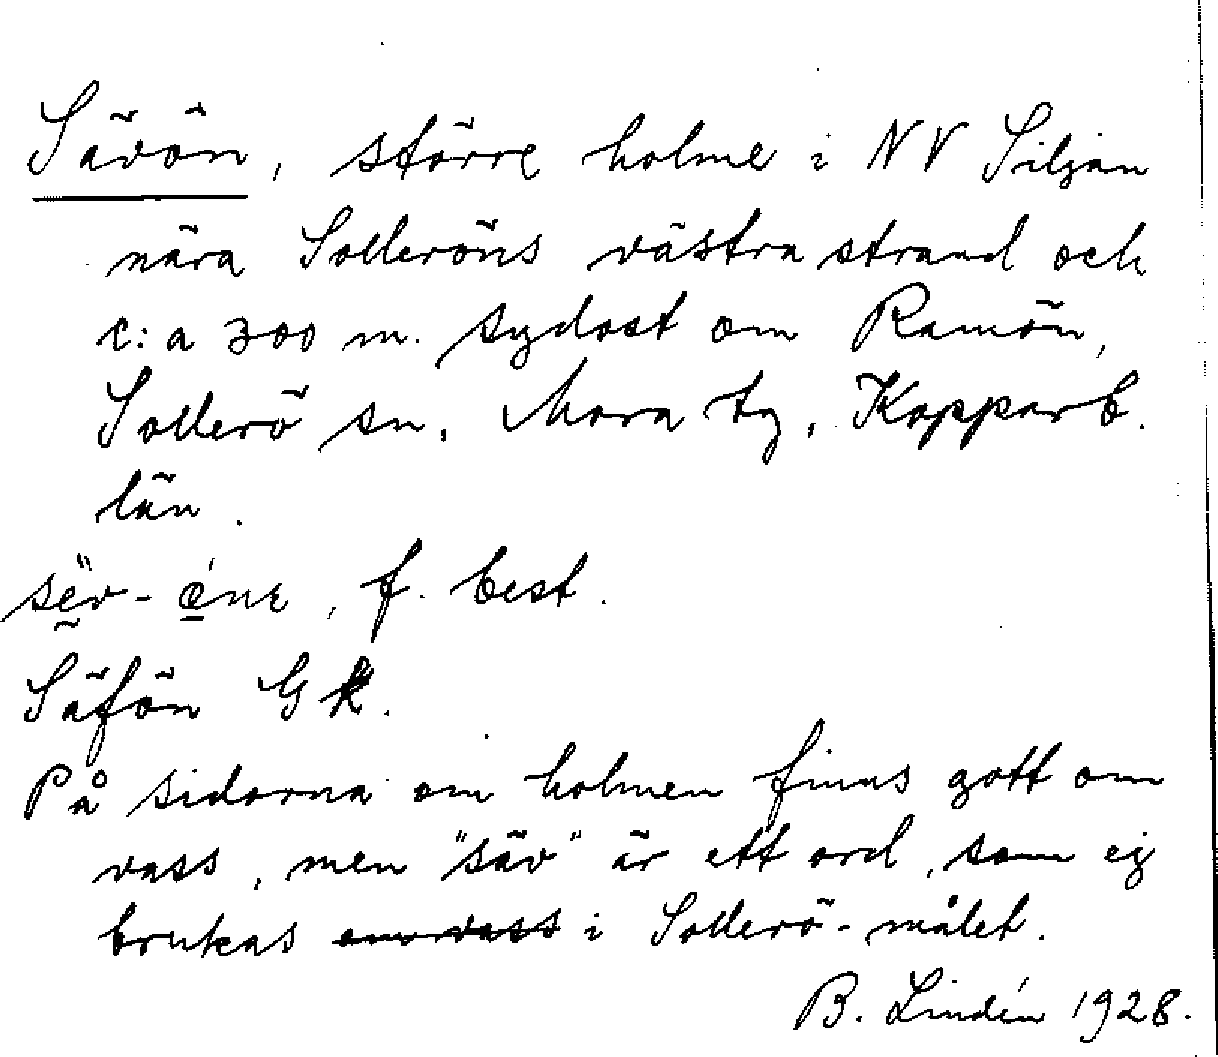 Sävön, större holme i NV Siljan
nära Solleröns västra strand och
c:a 300 m. sydost om Ramön,
Sollerö sn, Mora tg, Kopparb.
län.
f. best.
Säfön GK.
På sidorna om holmen finns gott om
vass, men "säv" är ett ord, som ej
brukas i Sollerö-målet.
B. Lindén 1928.